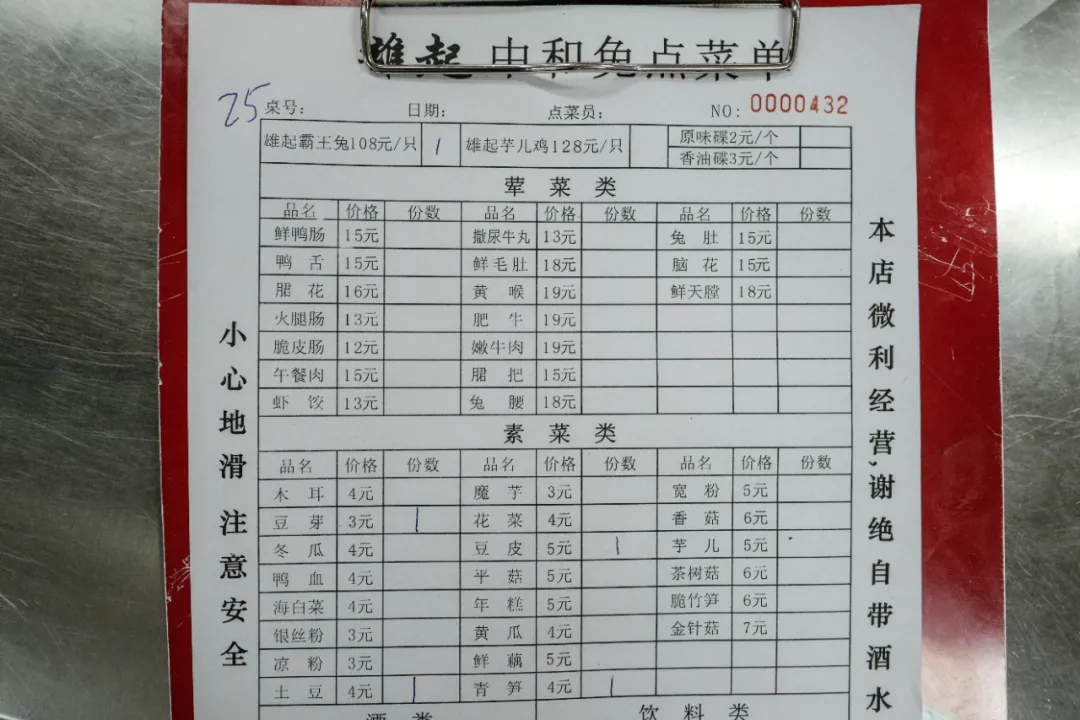 雄起 中和兔点菜单
25 桌号: 日期: 点菜员: NO: 0000432
雄起霸王兔108元/只 1 雄起芋儿鸡128元/只 原味碟2元/个
香油碟3元/个
荤菜类
品名 价格 份数 品名 价格 份数 品名 价格 份数
鲜鸭肠 15元 撒尿牛丸 13元 兔肚 15元
鸭舌 15元 鲜毛肚 18元 脑花 15元
腘花 16元 黄喉 19元 鲜天膛 18元
火腿肠 13元 肥牛 19元
脆皮肠 12元 嫩牛肉 19元
午餐肉 15元 腘把 15元
虾饺 13元 兔腰 18元
素菜类
品名 价格 份数 品名 价格 份数 品名 价格 份数
木耳 4元 魔芋 3元 宽粉 5元
豆芽 3元 1 花菜 4元 香菇 6元
冬瓜 4元 豆皮 5元 1 芋儿 5元
鸭血 4元 平菇 5元 茶树菇 6元
海白菜 4元 年糕 5元 脆竹笋 6元
银丝粉 3元 黄瓜 4元 金针菇 7元
凉粉 3元 鲜藕 5元
土豆 4元 1 青笋 4元 1
酒类 饮料类
小心地滑 注意安全
本店微利经营,谢绝自带酒水